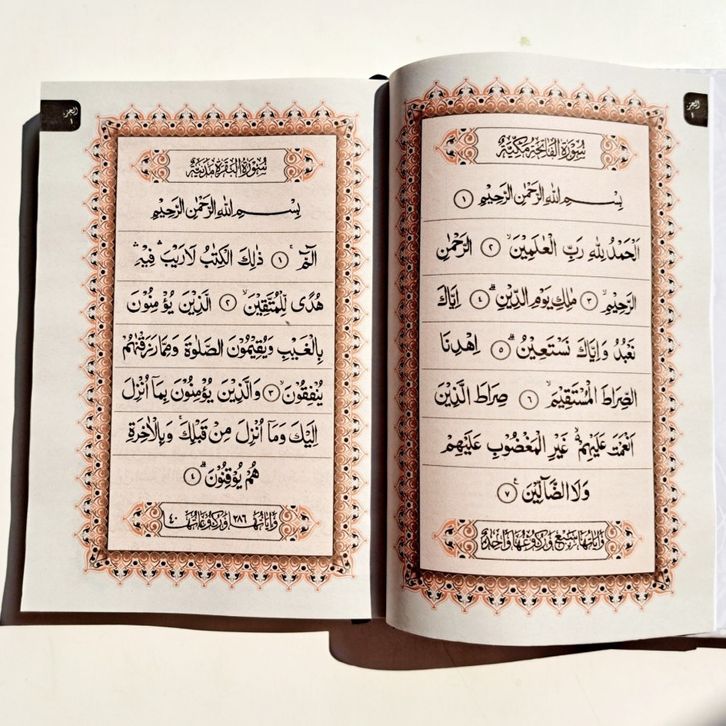 الجزء
١
سُورَةُ الْفَاتِحَةِ مَكِّيَّةٌ
بِسْمِ اللهِ الرَّحْمٰنِ الرَّحِيْمِ ١
اَلْحَمْدُ لِلّٰهِ رَبِّ الْعٰلَمِيْنَۙ ٢ الرَّحْمٰنِ
الرَّحِيْمِۙ ٣ مٰلِكِ يَوْمِ الدِّيْنِۗ ٤ اِيَّاكَ
نَعْبُدُ وَاِيَّاكَ نَسْتَعِيْنُۗ ٥ اِهْدِنَا
الصِّرَاطَ الْمُسْتَقِيْمَۙ ٦ صِرَاطَ الَّذِيْنَ
اَنْعَمْتَ عَلَيْهِمْۙ غَيْرِ الْمَغْضُوْبِ عَلَيْهِمْ
وَلَا الضَّاۤلِّيْنَ ࣖ ٧
وَاٰيَاتُهَا سَبْعٌ وَرُكُوْعُهَا وَاحِدَةٌ
الجزء
١
سُورَةُ الْبَقَرَةِ مَدَنِيَّةٌ
بِسْمِ اللهِ الرَّحْمٰنِ الرَّحِيْمِ
الۤمّۤۚ ١ ذٰلِكَ الْكِتٰبُ لَا رَيْبَۛ فِيْهِۛ
هُدًى لِّلْمُتَّقِيْنَۙ ٢ الَّذِيْنَ يُؤْمِنُوْنَ
بِالْغَيْبِ وَيُقِيْمُوْنَ الصَّلٰوةَ وَمِمَّا رَزَقْنٰهُمْ
يُنْفِقُوْنَۙ ٣ وَالَّذِيْنَ يُؤْمِنُوْنَ بِمَآ اُنْزِلَ
اِلَيْكَ وَمَآ اُنْزِلَ مِنْ قَبْلِكَۚ وَبِالْاٰخِرَةِ
هُمْ يُوْقِنُوْنَۗ ٤
وَاٰيَاتُهَا ٢٨٦ وَرُكُوْعَاتُهَا ٤٠